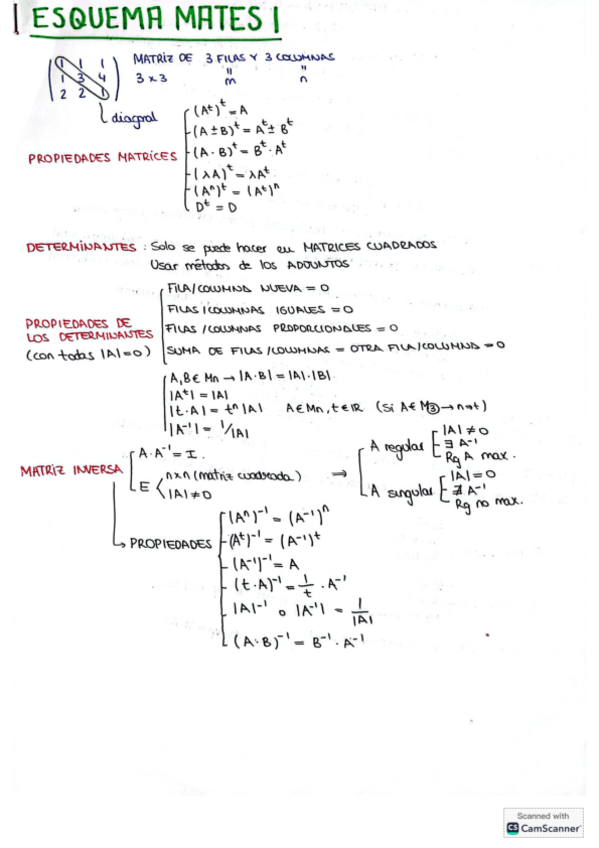 ESQUEMA MATES 1
1 1 1 MATRIZ DE 3 FILAS Y 3 COLUMNAS
1 3 4 3x3 " "
2 2 1 m n
diagonal
PROPIEDADES MATRICES
(Aᵗ)ᵗ = A
(A ± B)ᵗ = Aᵗ ± Bᵗ
(A · B)ᵗ = Bᵗ · Aᵗ
(λA)ᵗ = λAᵗ
(Aⁿ)ᵗ = (Aᵗ)ⁿ
Dᵗ = D
DETERMINANTES : Solo se puede hacer en MATRICES CUADRADOS
Usar métodos de los ADJUNTOS
PROPIEDADES DE
LOS DETERMINANTES
(con todas |A|=0)
FILA/COLUMNA NUEVA = 0
FILAS/COLUMNAS IGUALES = 0
FILAS/COLUMNAS PROPORCIONALES = 0
SUMA DE FILAS/COLUMNAS = OTRA FILA/COLUMNA = 0
A,B ∈ Mn → |A·B| = |A|·|B|
|Aᵗ| = |A|
|t·A| = tⁿ|A| A∈Mn, t∈IR (Si A∈M③→n=t)
|A⁻¹| = 1/|A|
MATRIZ INVERSA
A·A⁻¹ = I.
E
n×n (matriz cuadrada)
|A| ≠ 0
→
A regular
|A| ≠ 0
∃ A⁻¹
Rg A max.
A singular
|A| = 0
∄ A⁻¹
Rg no max.
PROPIEDADES
(Aⁿ)⁻¹ = (A⁻¹)ⁿ
(Aᵗ)⁻¹ = (A⁻¹)ᵗ
(A⁻¹)⁻¹ = A
(t·A)⁻¹ = 1/t · A⁻¹
|A|⁻¹ o |A⁻¹| = 1/|A|
(A·B)⁻¹ = B⁻¹ · A⁻¹
Scanned with
CS CamScanner